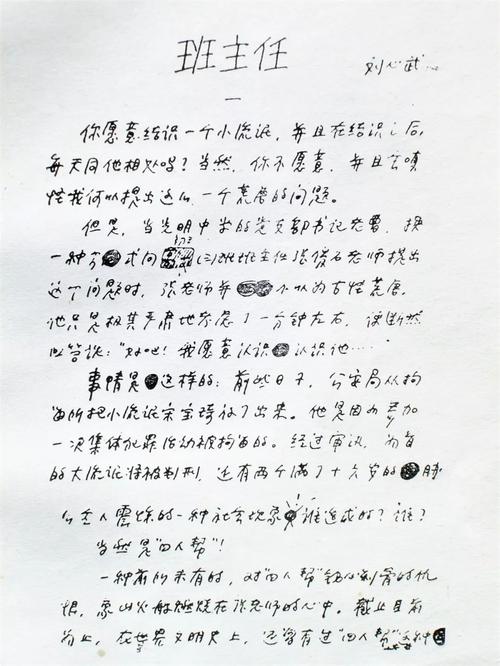 班主任
刘心武
一
你愿意结识一个小流氓，并且在结识之后，
每天同他相处吗？当然，你不愿意，并且会嗔
怪我何以提出这么一个荒唐的问题。
但是，当光明中学的党支部书记老曹，换
一种方式向初三(三)班班主任张俊石老师提出
这个问题时，张老师并不认为古怪荒唐，
他只是极其严肃地考虑了一分钟左右，便断然
回答说："好吧！我愿意认识认识他……"
事情是这样的：前些日子，公安局从拘
留所把小流氓宋宝琦放了出来。他是因为参加
一次集体犯罪活动被拘留的。经过审讯，为首
的大流氓将被判刑，还有两个满了十六岁的
么令人震惊的一种社会现象谁造成的？谁？
当然是"四人帮"！
一种前所未有的，对"四人帮"铭心刻骨的仇
恨，象火山般燃烧在张老师的心中。截止目前
为止，在世界文明史上，还曾有过"四人帮"这种